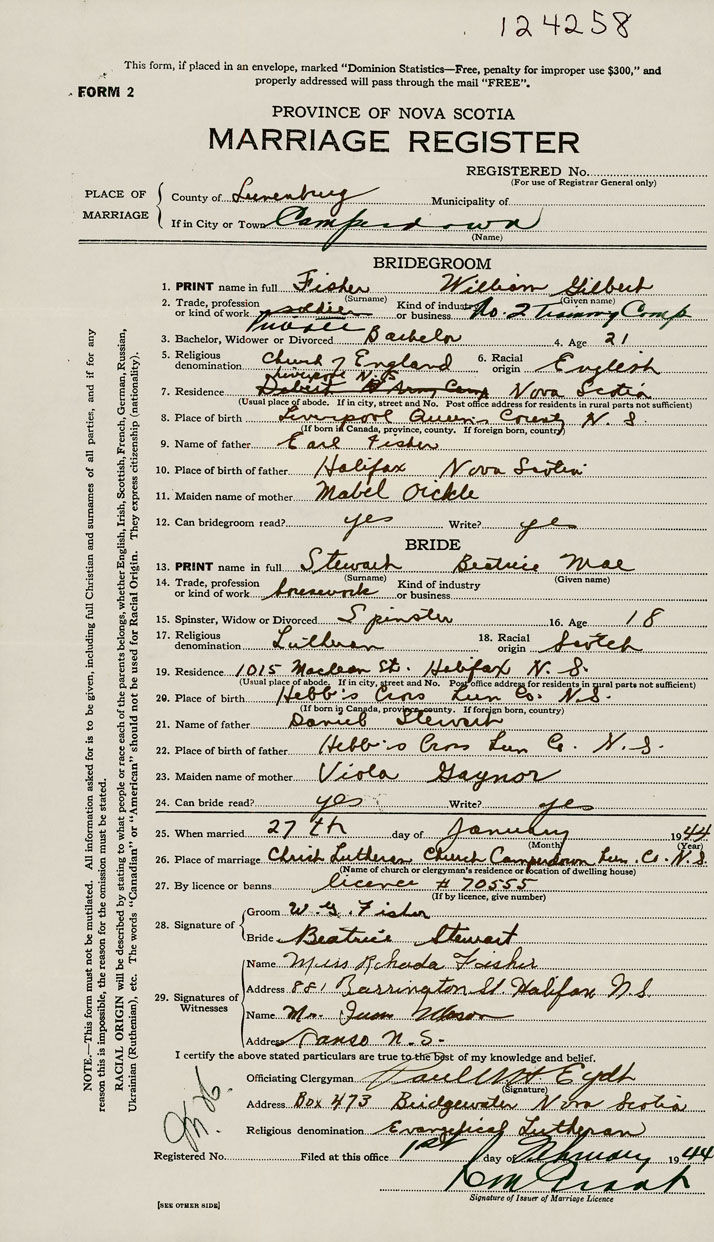 124258
This form, if placed in an envelope, marked "Dominion Statistics—Free, penalty for improper use $300," and
properly addressed will pass through the mail "FREE".
FORM 2
PROVINCE OF NOVA SCOTIA
MARRIAGE REGISTER
REGISTERED No.
(For use of Registrar General only)
PLACE OF MARRIAGE
County of Lunenburg Municipality of
If in City or Town Camperdown
(Name)
BRIDEGROOM
1. PRINT name in full Fisher William Gilbert
(Surname) (Given name)
2. Trade, profession or kind of work soldier Private Kind of industry or business No. 2 Training Comp
3. Bachelor, Widower or Divorced Bachelor 4. Age 21
5. Religious denomination Church of England 6. Racial origin English
Liverpool N.S.
7. Residence Debert Army Camp Nova Scotia
(Usual place of abode. If in city, street and No. Post office address for residents in rural parts not sufficient)
8. Place of birth Liverpool Queens County N. S.
(If born in Canada, province, county. If foreign born, country)
9. Name of father Earl Fisher
10. Place of birth of father Halifax Nova Scotia
11. Maiden name of mother Mabel Oickle
12. Can bridegroom read? yes Write? yes
BRIDE
13. PRINT name in full Stewart Beatrice Mae
(Surname) (Given name)
14. Trade, profession or kind of work housework Kind of industry or business
15. Spinster, Widow or Divorced Spinster 16. Age 18
17. Religious denomination Lutheran 18. Racial origin Scotch
19. Residence 1015 Maclean St. Halifax N. S.
(Usual place of abode. If in city, street and No. Post office address for residents in rural parts not sufficient)
20. Place of birth Hebb's Cross Lun Co. N.S.
(If born in Canada, province, county. If foreign born, country)
21. Name of father Daniel Stewart
22. Place of birth of father Hebb's Cross Lun Co. N. S.
23. Maiden name of mother Viola Gaynor
24. Can bride read? yes Write? yes
25. When married 27th day of January 1944
(Month) (Year)
26. Place of marriage Christ Lutheran Church Camperdown Lun. Co. N.S.
(Name of church or clergyman's residence or location of dwelling house)
27. By licence or banns licence # 70555
(If by licence, give number)
28. Signature of
Groom W. G. Fisher
Bride Beatrice Stewart
29. Signatures of Witnesses
Name Miss Rhoda Fisher
Address 881 Barrington St Halifax N.S.
Name Mr.
Address Canso N.S.
I certify the above stated particulars are true to the best of my knowledge and belief.
Officiating Clergyman Paul W H Eydt
(Signature)
Address Box 473 Bridgewater Nova Scotia
Religious denomination Evangelical Lutheran
Registered No. Filed at this office 1st day of February 1944
Signature of Issuer of Marriage Licence
[SEE OTHER SIDE]
NOTE.—This form must not be mutilated. All information asked for is to be given, including full Christian and surnames of all parties, and if for any
reason this is impossible, the reason for the omission must be stated.
RACIAL ORIGIN will be described by stating to what people or race each of the parents belongs, whether English, Irish, Scottish, French, German, Russian,
Ukrainian (Ruthenian), etc. The words "Canadian" or "American" should not be used for Racial Origin. They express citizenship (nationality).